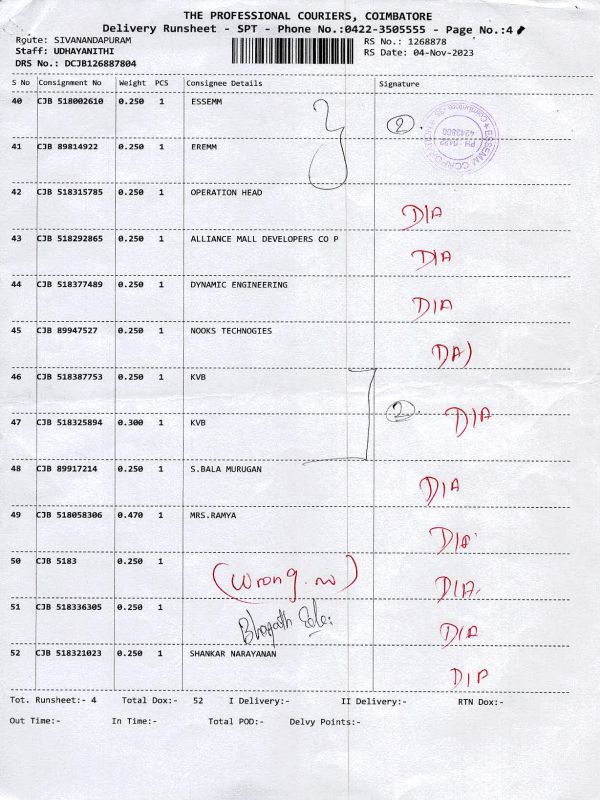 THE PROFESSIONAL COURIERS, COIMBATORE
Delivery Runsheet - SPT - Phone No.:0422-3505555 - Page No.:4
Route: SIVANANDAPURAM
RS No.: 1268878
Staff: UDHAYANITHI
RS Date: 04-Nov-2023
DRS No.: DCJB126887804
S No Consignment No Weight PCS Consignee Details Signature
40 CJB 518002610 0.250 1 ESSEMM 2
41 CJB 89814922 0.250 1 EREMM
42 CJB 518315785 0.250 1 OPERATION HEAD D/A
43 CJB 518292865 0.250 1 ALLIANCE MALL DEVELOPERS CO P D/A
44 CJB 518377489 0.250 1 DYNAMIC ENGINEERING D/A
45 CJB 89947527 0.250 1 NOOKS TECHNOGIES D/A
46 CJB 518387753 0.250 1 KVB
47 CJB 518325894 0.300 1 KVB 2 D/A
48 CJB 89917214 0.250 1 S.BALA MURUGAN D/A
49 CJB 518058306 0.470 1 MRS.RAMYA D/A
50 CJB 5183 0.250 1 (Wrong. no) D/A
51 CJB 518336305 0.250 1 D/A
52 CJB 518321023 0.250 1 SHANKAR NARAYANAN D/A
Tot. Runsheet:- 4 Total Dox:- 52 I Delivery:- II Delivery:- RTN Dox:-
Out Time:- In Time:- Total POD:- Delvy Points:-